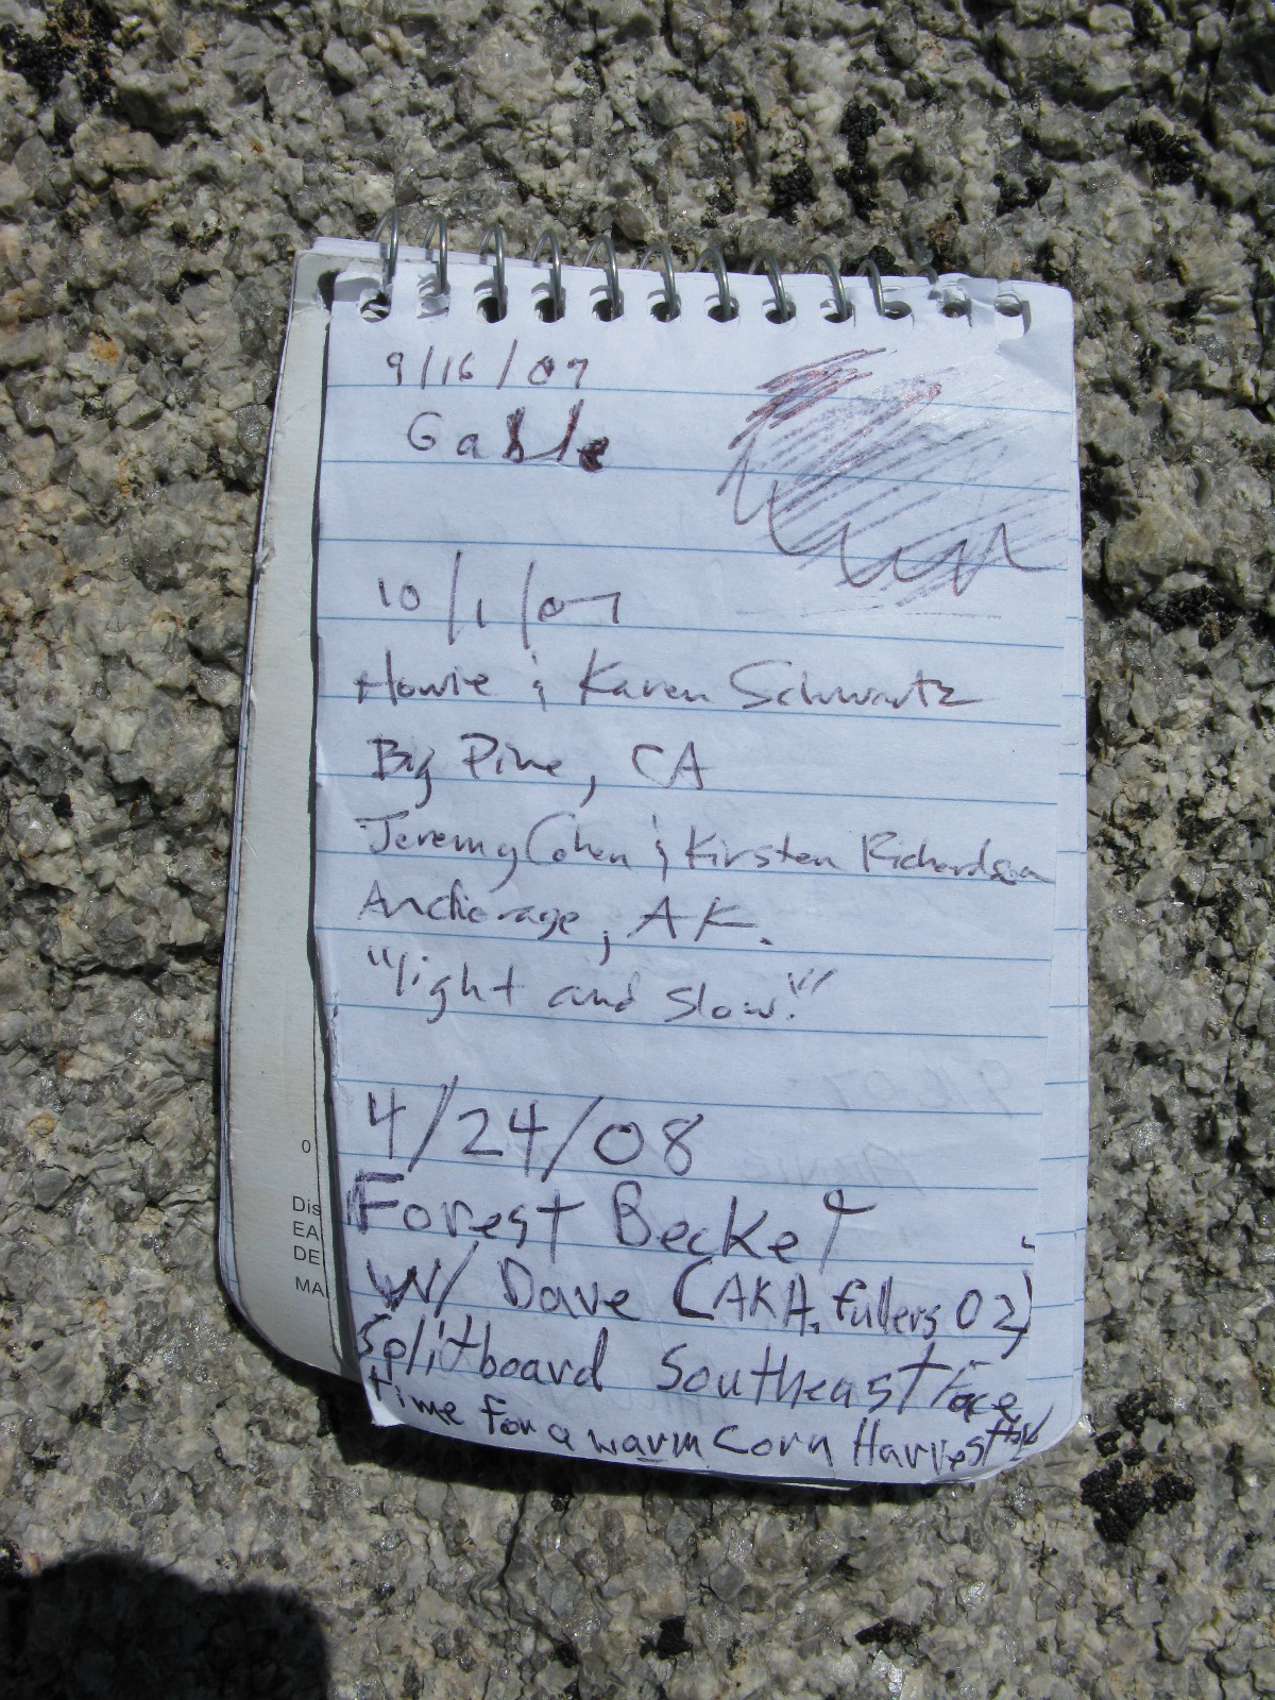 9/16/07
Gable
10/1/07
Howie & Karen Schwartz
Big Pine, CA
Jeremy Cohen & Kirsten Richardson
Anchorage, AK.
"light and slow."
4/24/08
Forest Becket
W/ Dave (AKA. fullers 02)
Splitboard Southeast Face
time for a warm Corn Harvest
0
Dis
EA
DE
MA